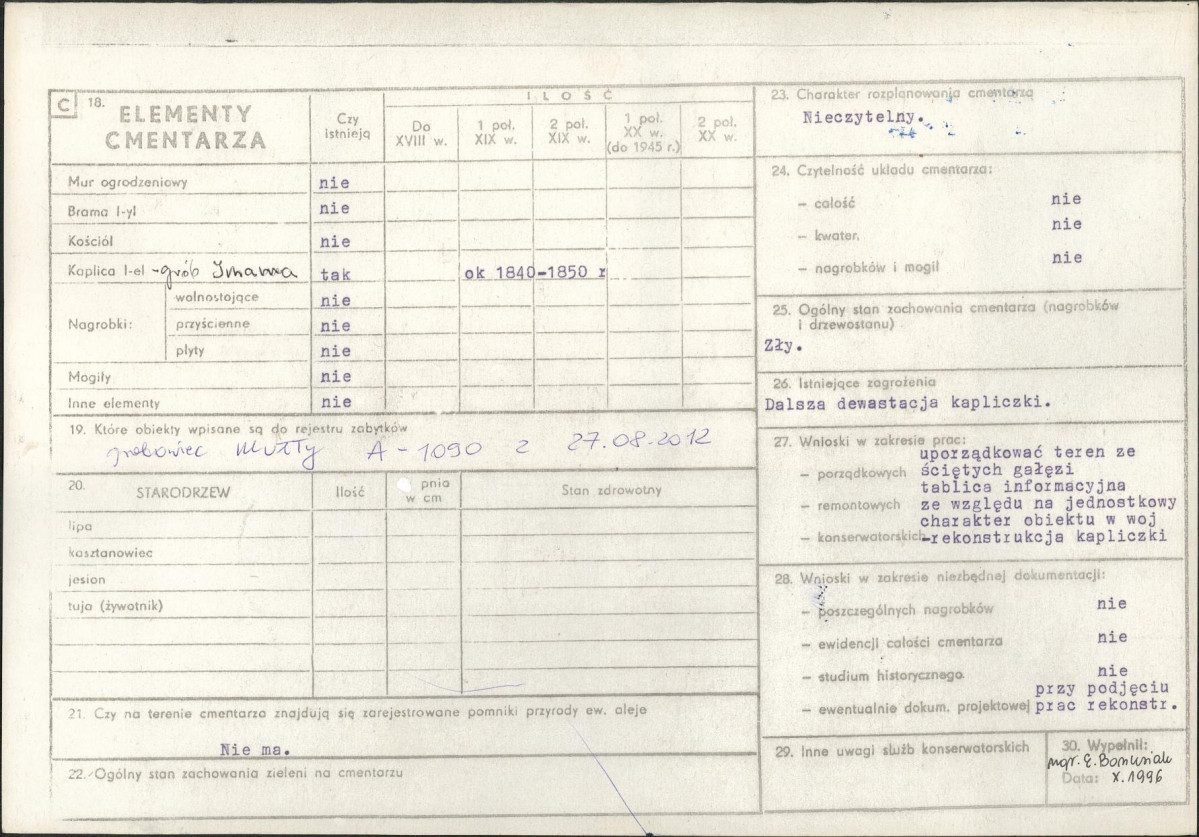 C 18. ELEMENTY CMENTARZA
Czy istnieją
ILOŚĆ
Do XVIII w.
1 poł. XIX w.
2 poł. XIX w.
1 poł. XX w. (do 1945 r.)
2 poł. XX w.
Mur ogrodzeniowy nie
Brama I-yl nie
Kościół nie
Kaplica I-el - grób Imama tak ok 1840-1850 r
Nagrobki:
wolnostojące nie
przyścienne nie
płyty nie
Mogiły nie
Inne elementy nie
19. Które obiekty wpisane są do rejestru zabytków
grobowiec Mułły A-1090 z 27.08.2012
20. STARODRZEW
Ilość
pnia w cm
Stan zdrowotny
lipa
kasztanowiec
jesion
tuja (żywotnik)
21. Czy na terenie cmentarza znajdują się zarejestrowane pomniki przyrody ew. aleje
Nie ma.
22. Ogólny stan zachowania zieleni na cmentarzu
23. Charakter rozplanowania cmentarza
Nieczytelny.
24. Czytelność układu cmentarza:
– całość nie
– kwater. nie
– nagrobków i mogił nie
25. Ogólny stan zachowania cmentarza (nagrobków
i drzewostanu)
Zły.
26. Istniejące zagrożenia
Dalsza dewastacja kapliczki.
27. Wnioski w zakresie prac:
uporządkować teren ze
– porządkowych ściętych gałęzi
tablica informacyjna
– remontowych ze względu na jednostkowy
charakter obiektu w woj
– konserwatorskich -rekonstrukcja kapliczki
28. Wnioski w zakresie niezbędnej dokumentacji:
– poszczególnych nagrobków nie
– ewidencji całości cmentarza nie
– studium historycznego nie
przy podjęciu
– ewentualnie dokum. projektowej prac rekonstr.
29. Inne uwagi służb konserwatorskich
30. Wypełnił:
mgr. E. Banasiak
Data: X.1996